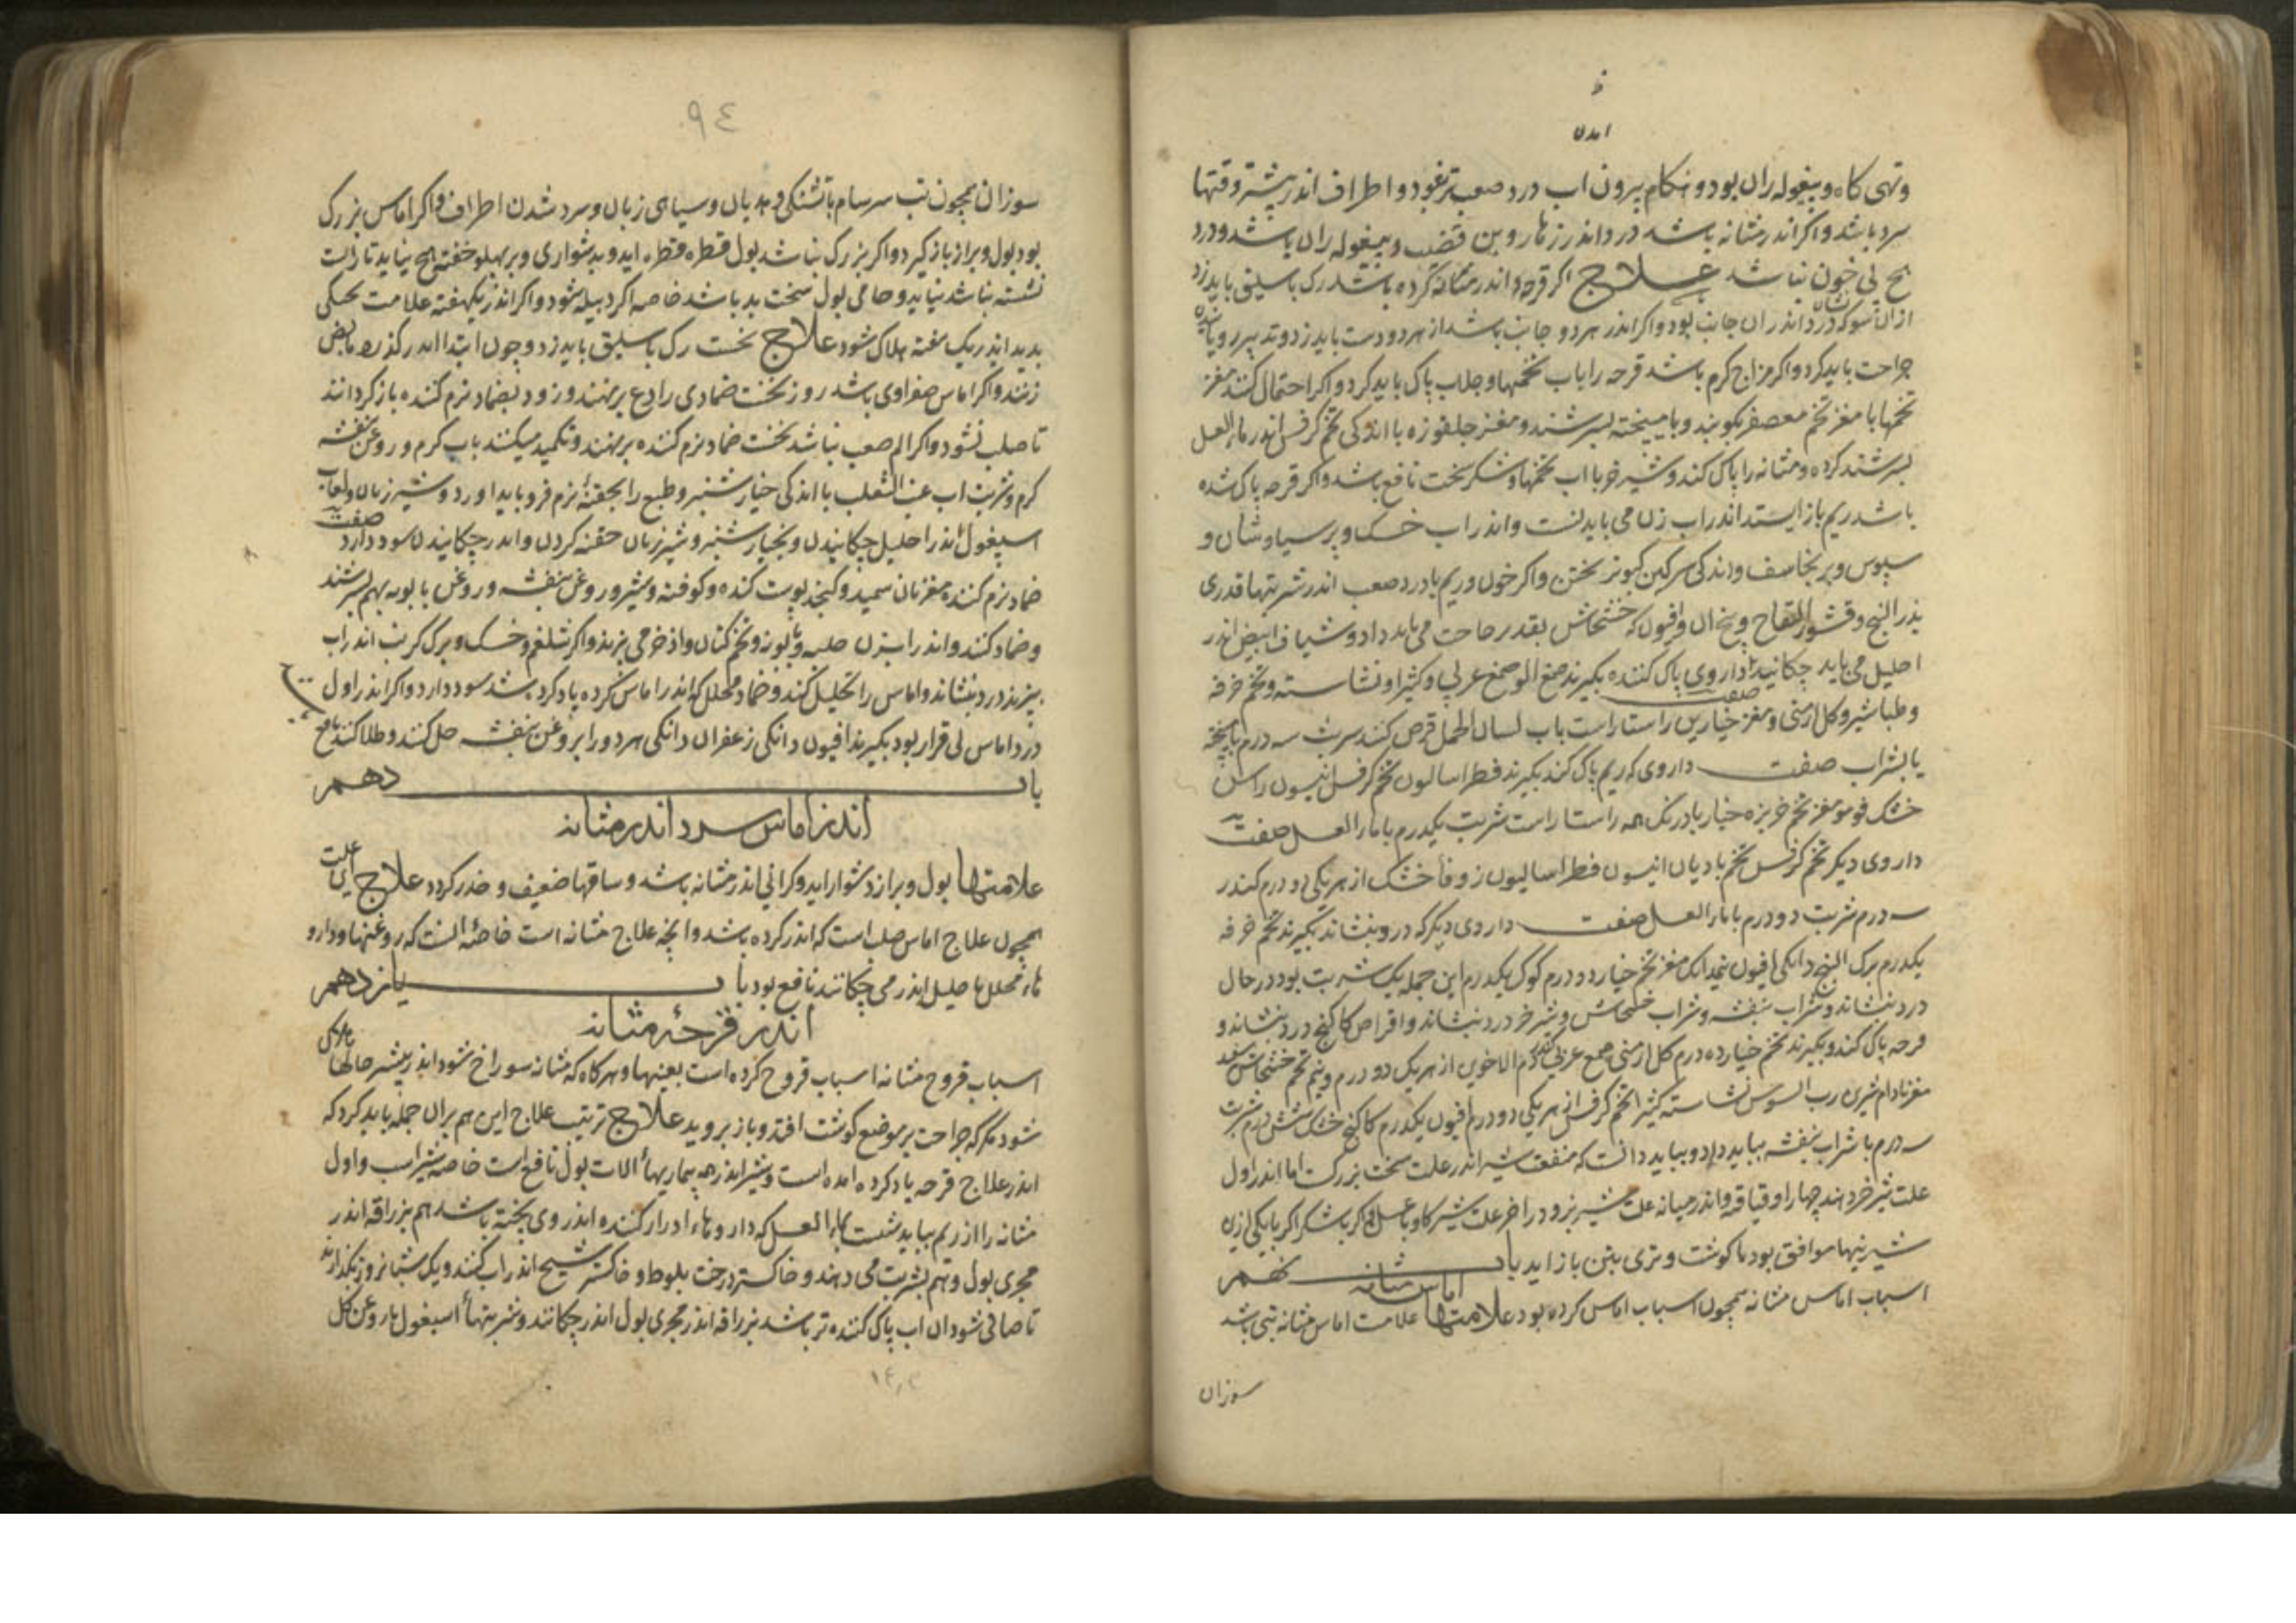 امدن
وتهی کاه و بیغوله ران بود و هنکام بیرون اب درد صعب تر بود و اطراف اندر بیشتر وقتها
سرد باشد و اکر اندر مثانه باشد درد اندر زهار و بن قضیب و بیغوله ران باشد و درد
هیچ بی خون نباشد علاج اکر قرحه اندر مثانه کرده باشد رک باسلیق باید زد
ازان سو که درد اندران جانب بود و اکر اندر هر دو جانب باشد از هر دو دست باید زد و تدبیر رویانیدن
جراحت باید کرد و اکر مزاج کرم باشد قرحه را باب تخمها و جلاب پاک باید کرد و اکر احتمال کند مغز
تخمها با مغز تخم معصفر بکوبند و با میبخته بسرشند و مغز جلغوزه با اندکی تخم کرفس اندر ماء العسل
بسرشند کرده و مثانه را پاک کند و شیر خر با اب تخمها و شکر سخت نافع باشد و اکر قرحه پاک شده
باشد ریم باز ایستد اندر اب زن می باید نشست و اندر اب خسک و پرسیاوشان و
سبوس و برنجاسف و اندکی سرکین کبوتر پختن و اکر خون و ریم با درد صعب اندر شربتها قدری
بذر البنج و قشور اللفاح و بیخ ان و افیون که خشخاش بقدر حاجت می باید داد و شیاف ابیض اندر
احلیل می باید چکانید صفت داروی پاک کننده بکیرند صمغ الو صمغ عربی و کثیرا و نشاسته و تخم خرفه
و طباشیر و کل ارمنی و مغز خیارین راستا راست باب لسان الحمل قرص کنند شربت سه درم با میپخته
یا بشراب صفت داروی که ریم پاک کند بکیرند فطراسالیون تخم کرفس انیسون راسن
خشک فو مو مغز تخم خربزه خیار بادرنک همه راستا راست شربت یکدرم با ماء العسل صفت
داروی دیکر تخم کرفس تخم بادیان انیسون فطراسالیون زوفا خشک از هر یکی دو درم کندر
سه درم شربت دو درم با ماء العسل صفت داروی دیکر که درد بنشاند بکیرند تخم خرفه
یکدرم برک البنج دانکی افیون نیمدانک مغز تخم خیار دو درم کوک یکدرم این جمله یک شربت بود در حال
درد بنشاند و شراب بنفشه و شراب خشخاش و شیر خر درد بنشاند و اقراص کاکنج درد بنشاند و
قرحه پاک کند و بکیرند تخم خیار ده درم کل ارمنی صمغ عربی کندر دم الاخوین از هر یک دو درم و نیم تخم خشخاش سفید
مغز بادام شیرین رب السوس نشاسته کثیرا تخم کرفس از هر یکی دو درم افیون یکدرم کاکنج خشک شش درم شربت
سه درم با شراب بنفشه بباید داد و بباید دانست که منفعت شیر اندر علت سخت بزرکست اما اندر اول
علت شیر خر دهند چهار اوقیه و اندر میانه علت شیر بز و در اخر علت شیر کاو با عسل و اکر با شکر اکر با یکی ازین
شیرینیها موافق بود تا کوشت و تری بتن باز اید باب نهم
اماس مثانه
اسباب اماس مثانه همچون اسباب اماس کرده بود علامتها علامت اماس مثانه تبی باشد
سوزان
٩٤
سوزان همچون تب سرسام با تشنکی و هذیان و سیاهی زبان و سرد شدن اطراف و اکر اماس بزرک
بود بول و براز باز کیرد و اکر بزرک نباشد بول قطره قطره اید و بدشواری و بر پهلو خفته هیچ نیاید تا راست
نشسته نباشد نیاید و حامی بول سخت بد باشد خاصه اکر دبیله شود و اکر اندر یکهفته علامت پختکی
پدید اندر یک هفته هلاک شود علاج نخست رک باسلیق باید زد و چون ابتدا اندر کذرد مابض
زنند و اکر اماس صفراوی باشد روز نخست ضمادی رادع برنهند و زود بضماد نرم کننده باز کردانند
تا صلب نشود و اکر الم صعب نباشد نخست ضماد نرم کننده برنهند و تکمید میکنند باب کرم و روغن بنفشه
کرم و شربت اب عنب الثعلب با اندکی خیار شنبر و طبع را بحقنه نرم فرو باید اورد و شیر زنان و لعاب
اسپغول اندر احلیل چکانیدن و بخیار شنبر و شیر زنان حقنه کردن و اندر چکانیدن سود دارد صفت
ضماد نرم کننده مغز نان سمید و کنجد پوست کنده و کوفته و شیر و روغن بنفشه و روغن بابونه بهم بسرشند
و ضماد کنند و اندر ابزن حلبه و بابونه و تخم کتان و اذخر می پزند و اکر شلغم و خسک و برک کرنب اندر اب
بپزند درد بنشاند و اماس را تحلیل کند و ضماد محلل که اندر اماس کرده یاد کرده شد سود دارد و اکر اندر اول
درد اماس بی قرار بود بکیرند افیون دانکی زعفران دانکی هر دو را بروغن بنفشه حل کنند و طلا کنند نافع
باب دهم
اندر اماس سرد اندر مثانه
علامتها بول و براز دشوار اید و کرانی اندر مثانه باشد و ساقها ضعیف و خدر کردد علاج این علت
همچون علاج اماس صلب است که اندر کرده باشد و انچه علاج مثانه است خاصه انست که روغنها و دارو
هاء محلل باحلیل اندر می چکانند نافع بود باب یازدهم
اندر قرحۀ مثانه
اسباب قروح مثانه اسباب قروح کرده است بعینها و هر کاه که مثانه سوراخ شود اندر بیشتر حالها هلاک
شود مکر که جراحت بر موضع کوشت افتد و باز بروید علاج ترتیب علاج این هم بران جمله باید کرد که
اندر علاج قرحه یاد کرده امده است و شیر اندر همه بیماریهاء الات بول نافع است خاصه شیر اسب و اول
مثانه را از ریم بباید شست بماء العسل که داروهاء ادرار کننده اندر وی پخته باشد هم بزراقه اندر
مجری بول و هم بشربت می دهند و خاکستر درخت بلوط و خاکستر شیح اندر اب کنند و یک شبانروز بکذارند
تا صافی شود ان اب پاک کننده تر باشد بزراقه اندر مجری بول اندر چکانند و شربتهاء اسپغول با روغن کل